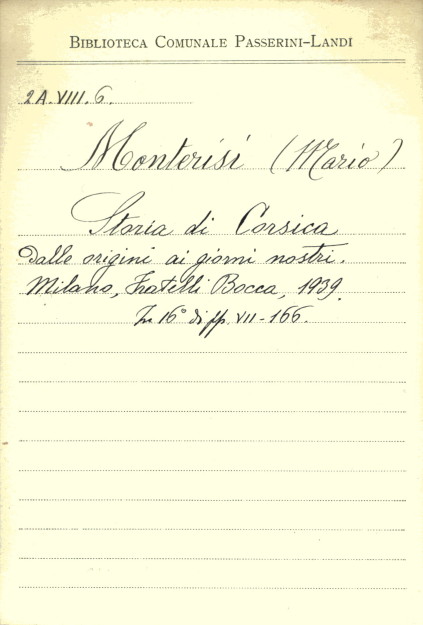 BIBLIOTECA COMUNALE PASSERINI-LANDI
2A.VIII.6.
Monterisi (Mario)
Storia di Corsica
dalle origini ai giorni nostri.
Milano, Fratelli Bocca, 1939.
In 16° di pp. VII-166.